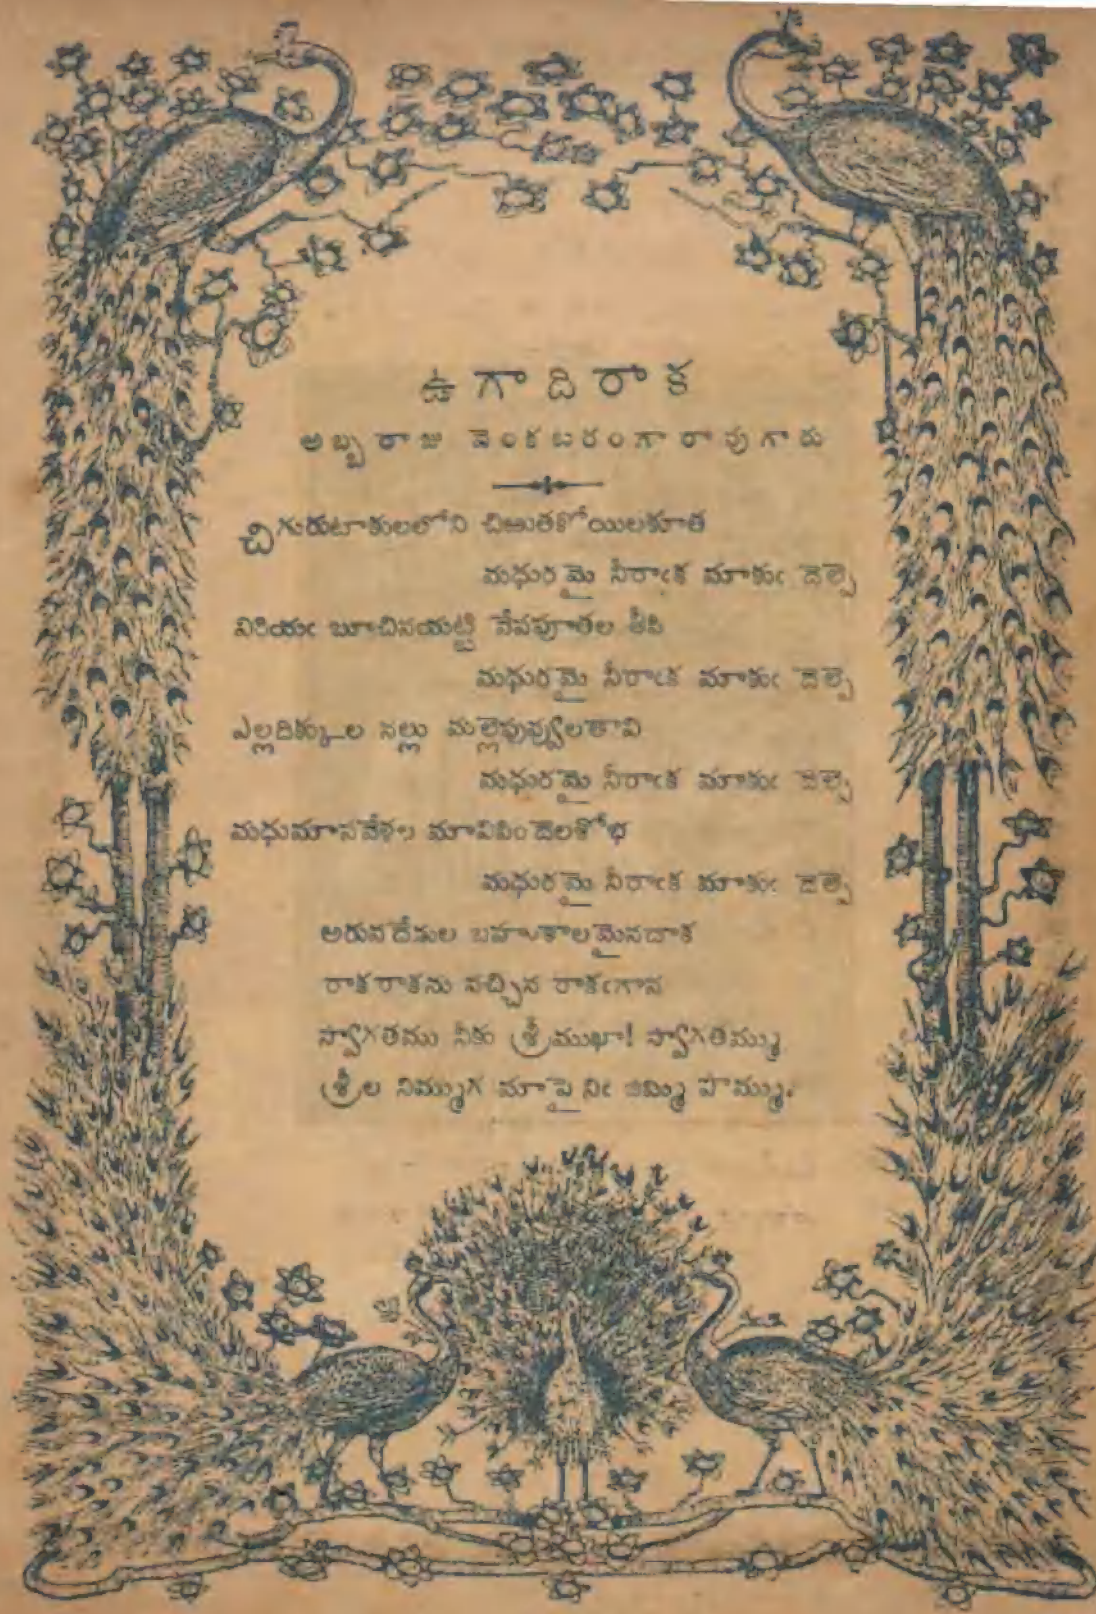 ఉగాది రాక
అబ్బరాజు వెంకటరంగారావుగారు
చిగురుటాకులలోని చిఱుతకోయిలకూత
మధురమై నీరాఁక మాకుఁ దెల్పె
విరియఁ బూచినయట్టి వేపపూతల తీపి
మధురమై నీరాఁక మాకుఁ దెల్పె
ఎల్లదిక్కుల నల్లు మల్లెపువ్వులతావి
మధురమై నీరాఁక మాకుఁ దెల్పె
మధుమాసవేళల మావిపిందెలశోభ
మధురమై నీరాఁక మాకుఁ దెల్పె
అరువదేఁడుల బహుకాలమైనదాక
రాకరాకను వచ్చిన రాకఁగాన
స్వాగతము నీకు శ్రీముఖా! స్వాగతమ్ము
శ్రీల నిమ్ముగ మాపై నిఁ జిమ్మి పొమ్ము.